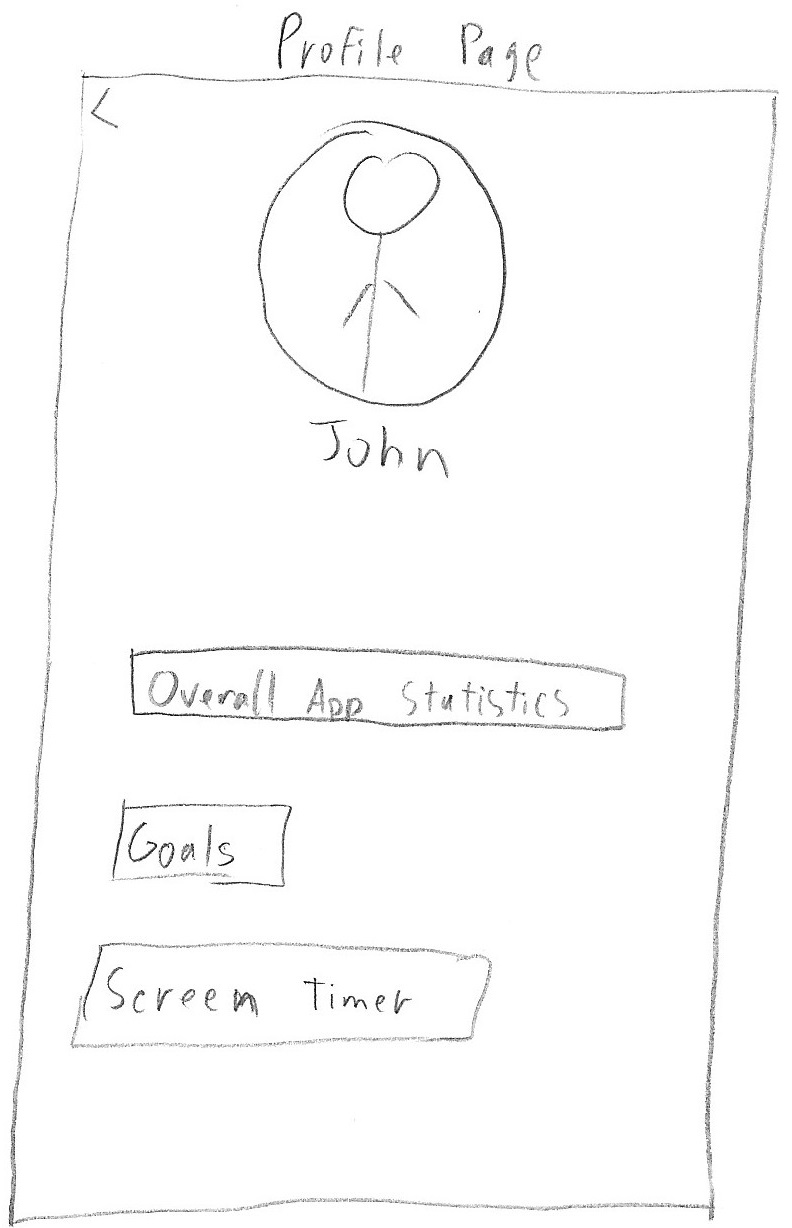 Profile Page
<
John
Overall App Statistics
Goals
Screem Timer